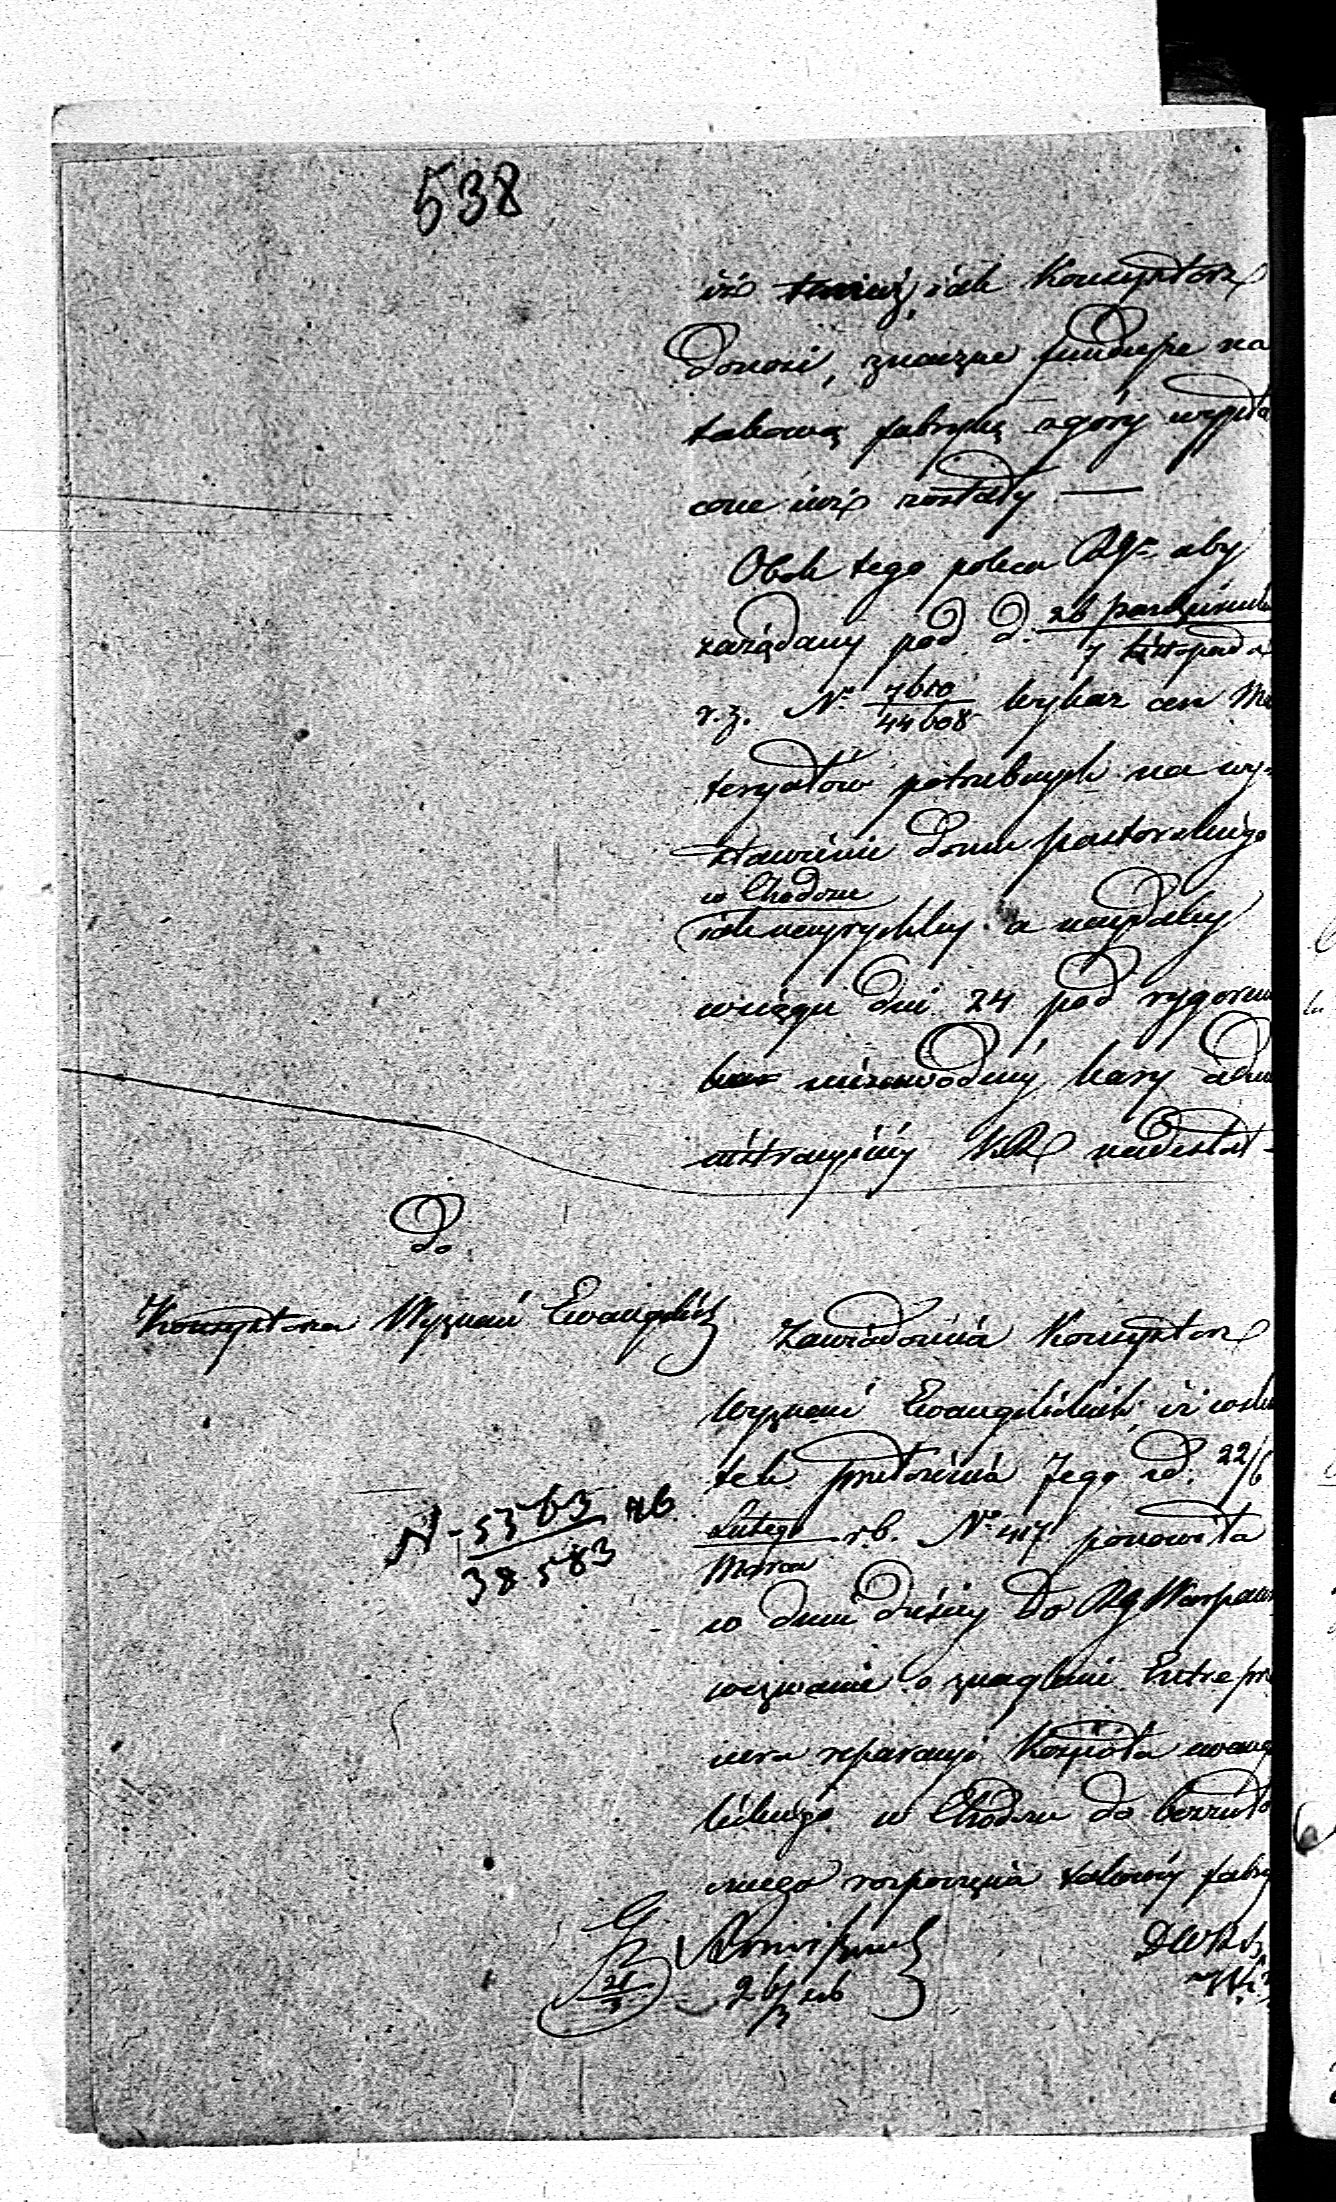 538
iż teraz, iak Konsystorz
donosi, znaczne fundusze na
takową fabrykę z góry wypła
cone iuż zostały —
Obok tego poleca Rgr. aby
zażądany pod d. 26 Października
7 Listopada
r. z. N. 7610
44608 Wykaz cen Ma
teryałów potrzebnych na wy-
stawienie domu pastorskiego
w Chodczu
iak nayrychley a naydaley
w ciągu dni 24 pod rygorem
niezawodney kary admi
nistracyiney KR nadesłał -
Do
Konsystorza Wyznań Ewangelick
Zawiadomia Konsystorz
Wyznań Ewangelickich, iż w sku
tek przełożenia Jego z d. 22/6
Lutego
Marca r. b. N. 417 ponowiła
w dniu dzisiey do Rg Warszaws
wezwanie o znaglenie Entrepre
nera reparacyi Kościoła ewang
lickiego w Chodczu do bezzwło
cznego rozpoczęcia takowey fabry
N - 5363
38583
21
3
26/3